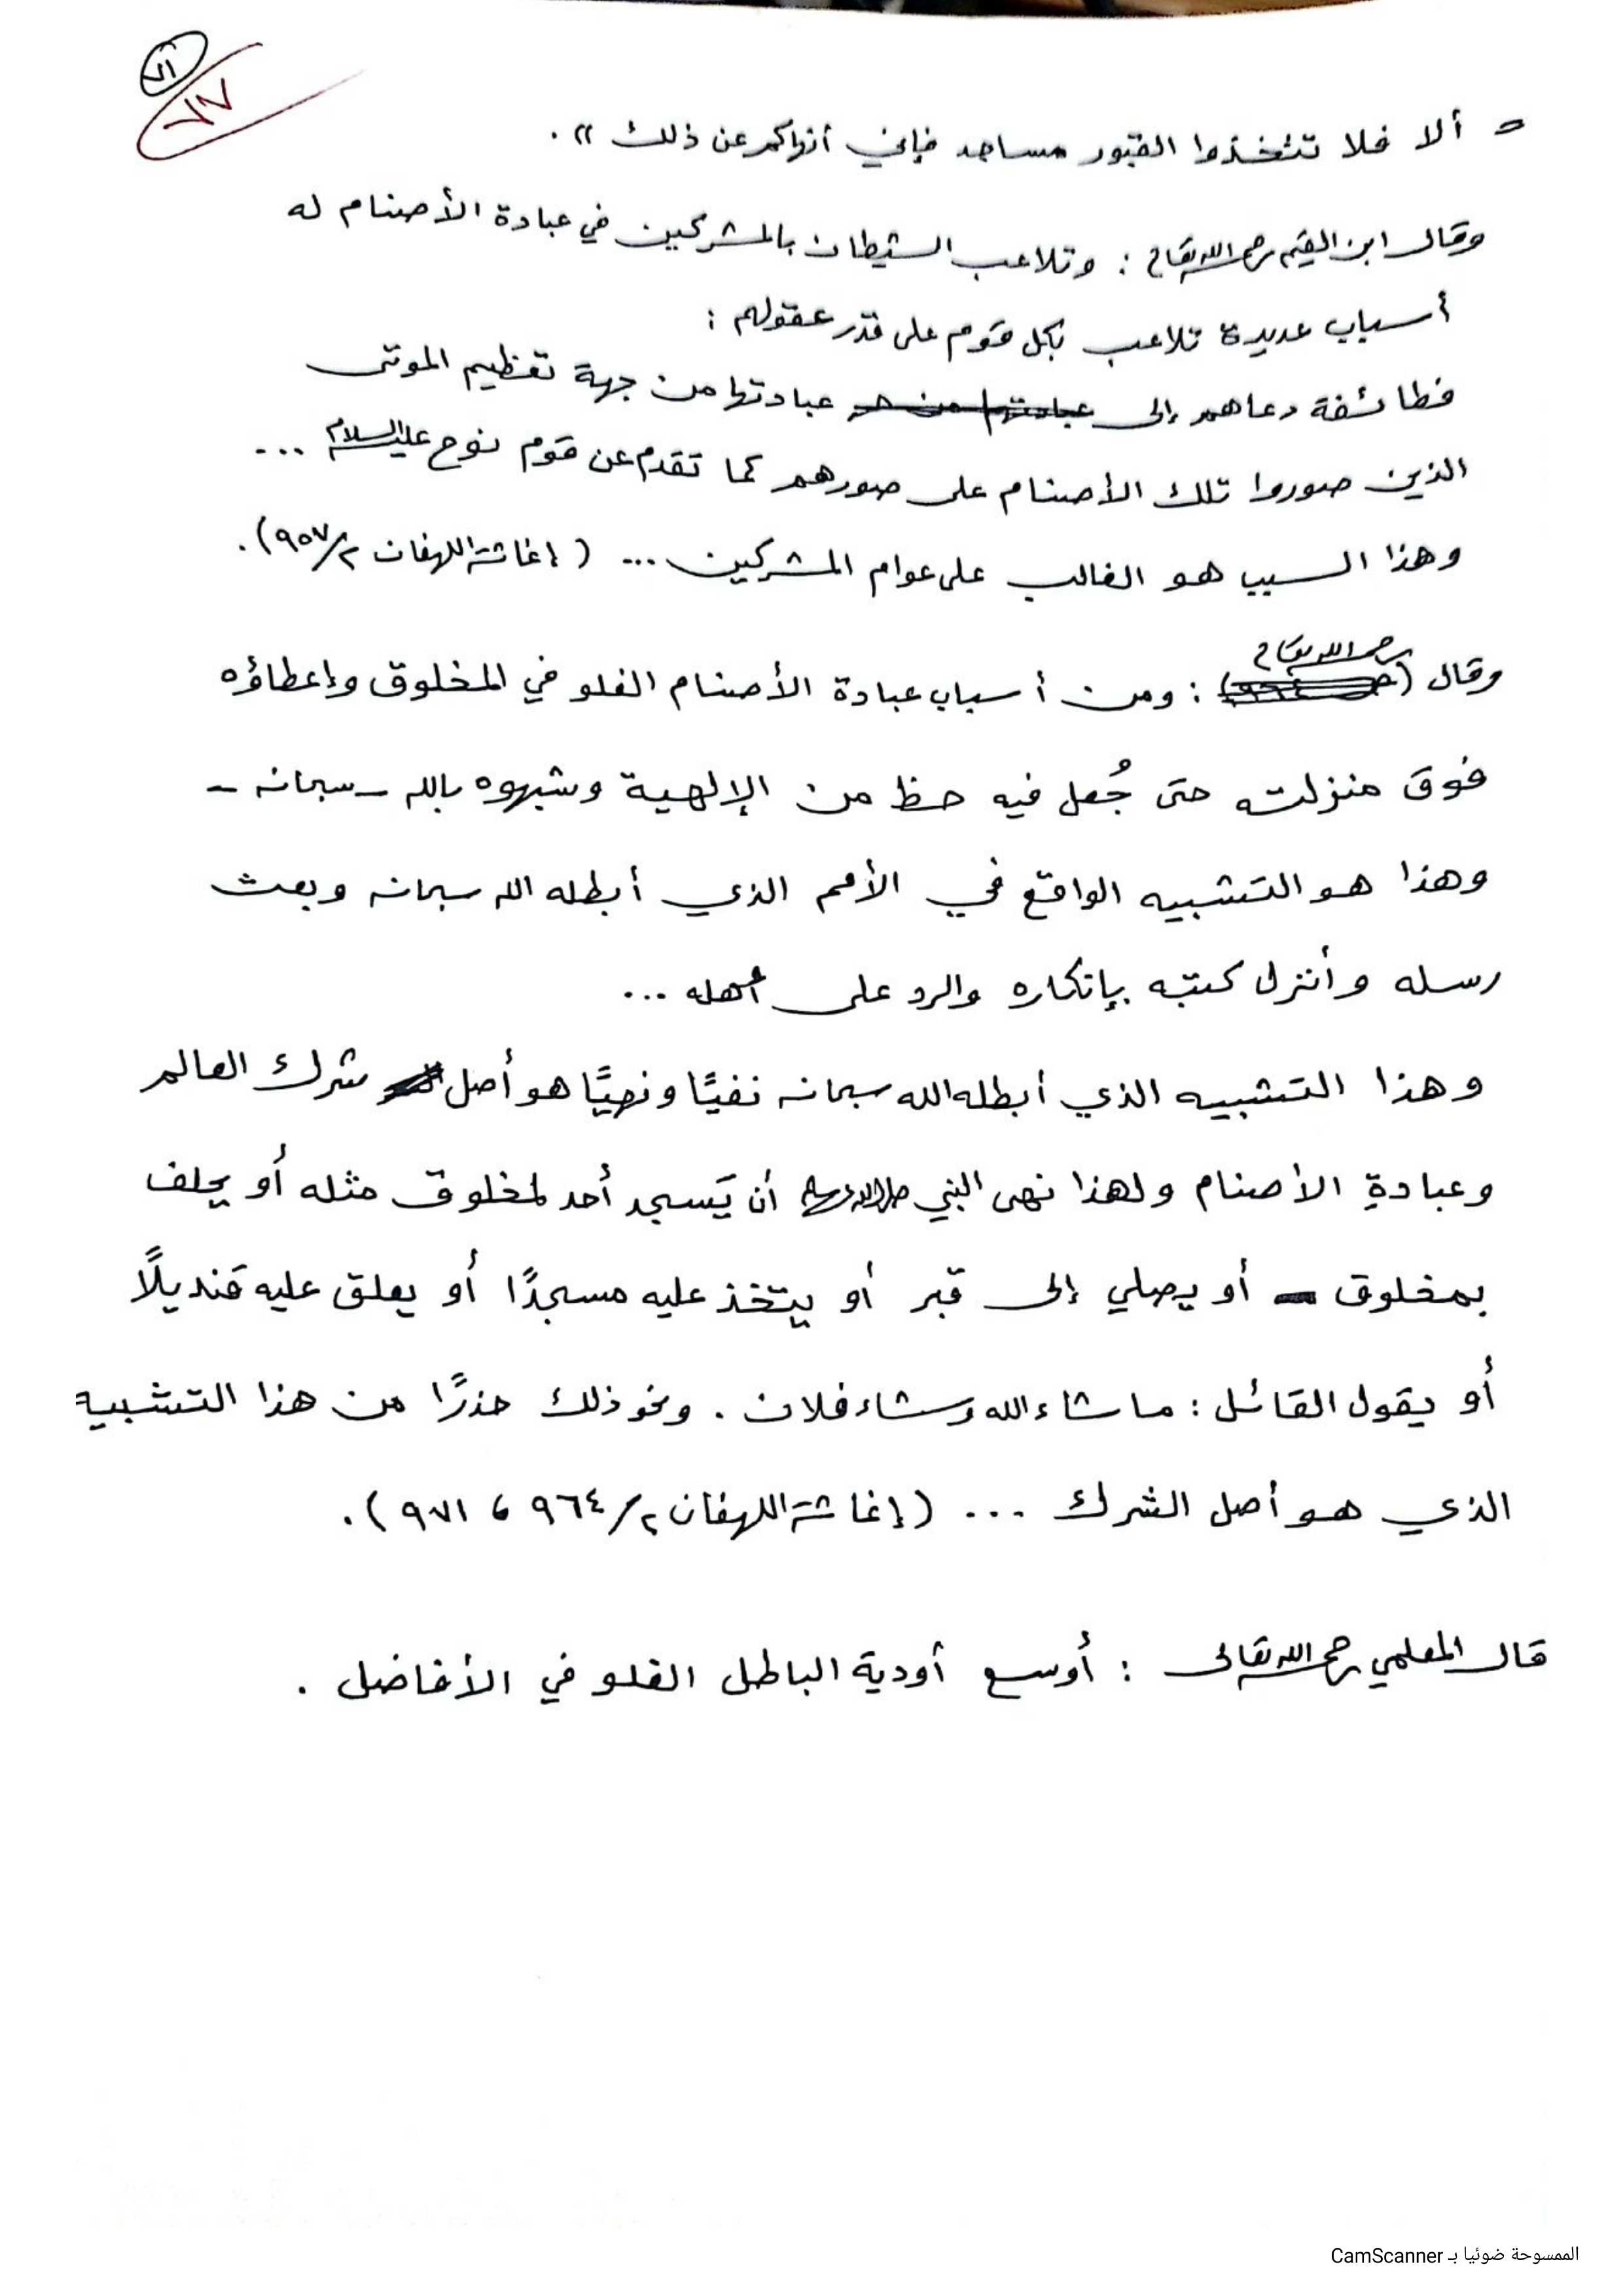 = ألا فلا تتخذوا القبور مساجد فإني أنهاكم عن ذلك» .
وقال ابن القيم رحمه الله تعالى : وتلاعب الشيطان بالمشركين في عبادة الأصنام له
أسباب عديدة تلاعب بكل قوم على قدر عقولهم :
فطائفة دعاهم إلى عبادتها من جهة تعظيم الموتى
الذين صوروا تلك الأصنام على صورهم كما تقدم عن قوم نوح عليه السلام ...
وهذا السبب هو الغالب على عوام المشركين ... ( إغاثة اللهفان ٢/ ٩٥٧).
وقال رحمه الله تعالى : ومن أسباب عبادة الأصنام الغلو في المخلوق وإعطاؤه
فوق منزلته حتى جُعل فيه حظ من الإلهية وشبهوه بالله - سبحانه -
وهذا هو التشبيه الواقع في الأمم الذي أبطله الله سبحانه وبعث
رسله وأنزل كتبه بإنكاره والرد على أهله ...
وهذا التشبيه الذي أبطله الله سبحانه نفيًا ونهيًا هو أصل شرك العالم
وعبادةِ الأصنام ولهذا نهى النبي صلى الله عليه وسلم أن يَسجد أحد لمخلوق مثله أو يحلف
بمخلوق أو يصلي إلى قبر أو يتخذ عليه مسجدًا أو يعلق عليه قنديلًا
أو يقول القائل : ما شاء الله وشاء فلان . ونحو ذلك حذرًا من هذا التشبيه
الذي هو أصل الشرك ... (إغاثة اللهفان ٢/ ٩٦٤ ، ٩٧١ ) .
قال المعلمي رحمه الله تعالى : أوسع أودية الباطل الغلو في الأفاضل .
الممسوحة ضوئيا بـ CamScanner